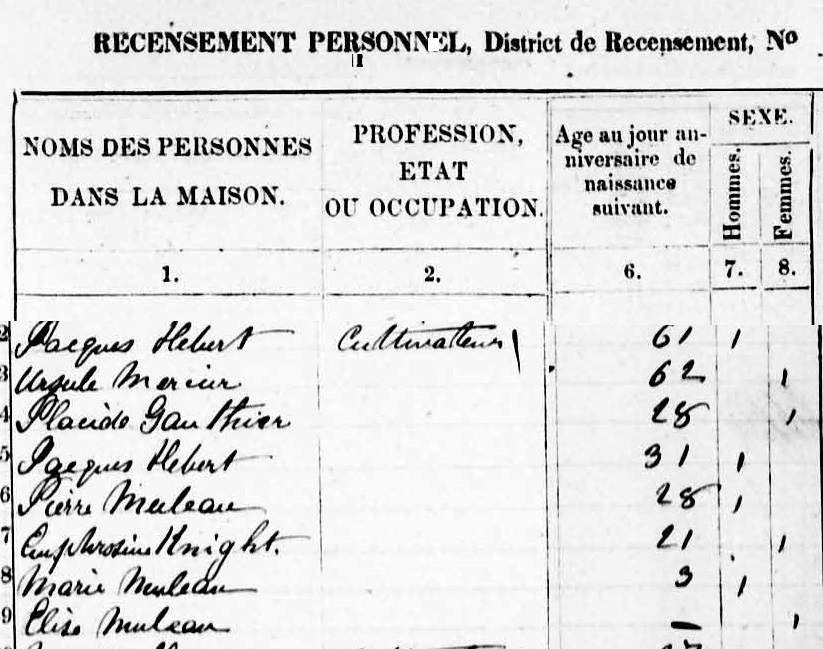 RECENSEMENT PERSONNEL, District de Recensement, No
NOMS DES PERSONNES DANS LA MAISON.
PROFESSION, ETAT OU OCCUPATION.
Age au jour an-
niversaire de
naissance
suivant.
SEXE.
Hommes.
Femmes.
1. 2. 6. 7. 8.
2 Jacques Hebert Cultivateur 61 1
3 Ursule Mercier 62 1
4 Placide Gauthier 28 1
5 Jacques Hebert 31 1
6 Pierre Muleau 28 1
7 Euphrosine Knight. 21 1
8 Marie Muleau 3 1
9 Elise Muleau — 1